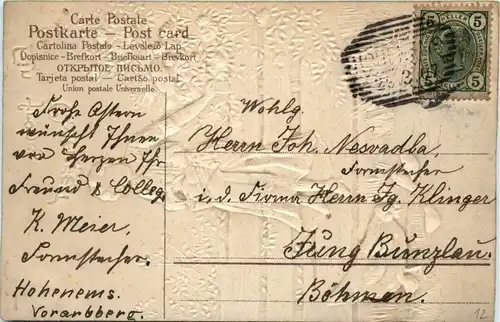 Carte Postale
Postkarte – Post card
Cartolina Postale – Levelező Lap
Dopisnice – Brefkort – Briefkaart – Brevkort
ОТКРЫТОЕ ПИСЬМО.
Tarjeta postal – Cartão postal
Union postale Universelle.
5 HELLER 5
5 5
Frohe Ostern
wünscht Ihnen
von Herzen Ihr
Freund & Colleg.
K. Meier,
Formstecher.
Hohenems.
Vorarbberg.
Wohlg.
Herrn Joh. Nesvadba,
Formstecher
i. d. Firma Herrn Ig. Klinger
Jung Bunzlau.
Böhmen.
12